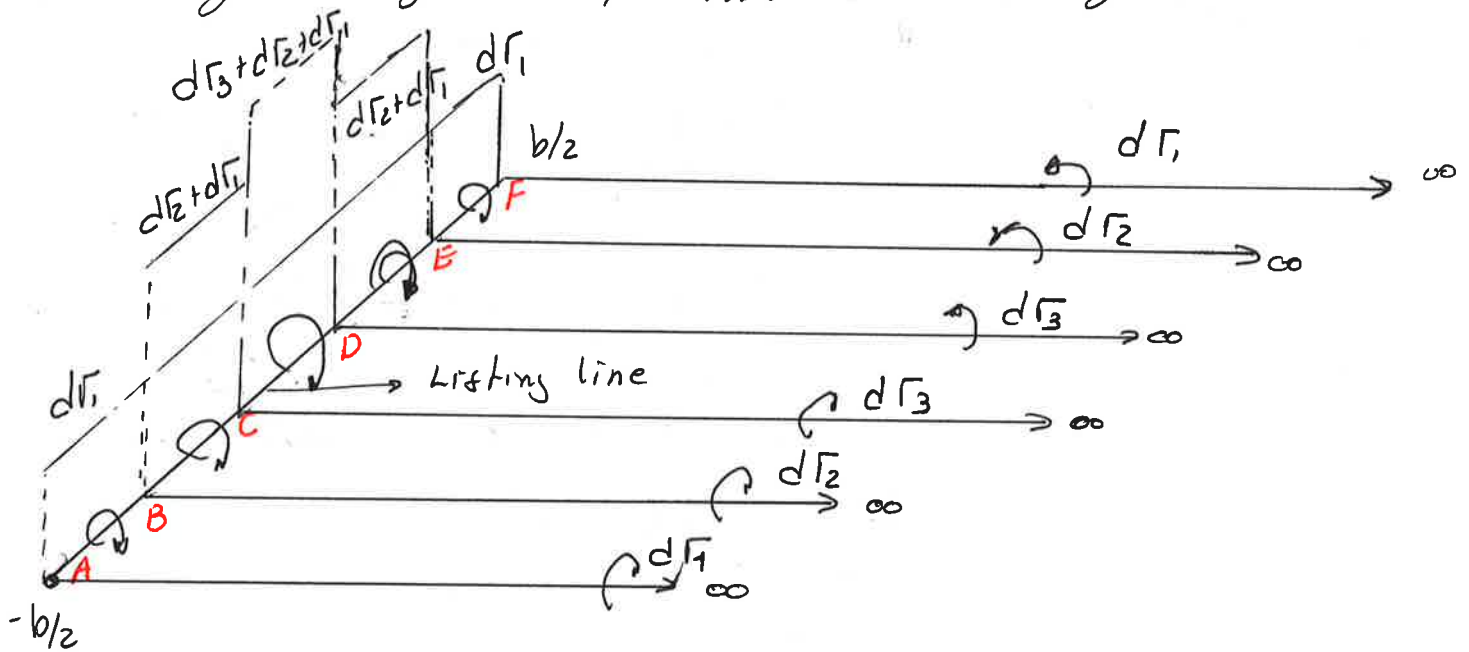 dΓ3+dΓ2+dΓ1
dΓ2+dΓ1
dΓ1
dΓ2+dΓ1
b/2
F
dΓ1
∞
E
dΓ2
∞
D
dΓ3
∞
Lifting line
dΓ1
C
dΓ3
∞
B
dΓ2
∞
A
dΓ1
∞
-b/2